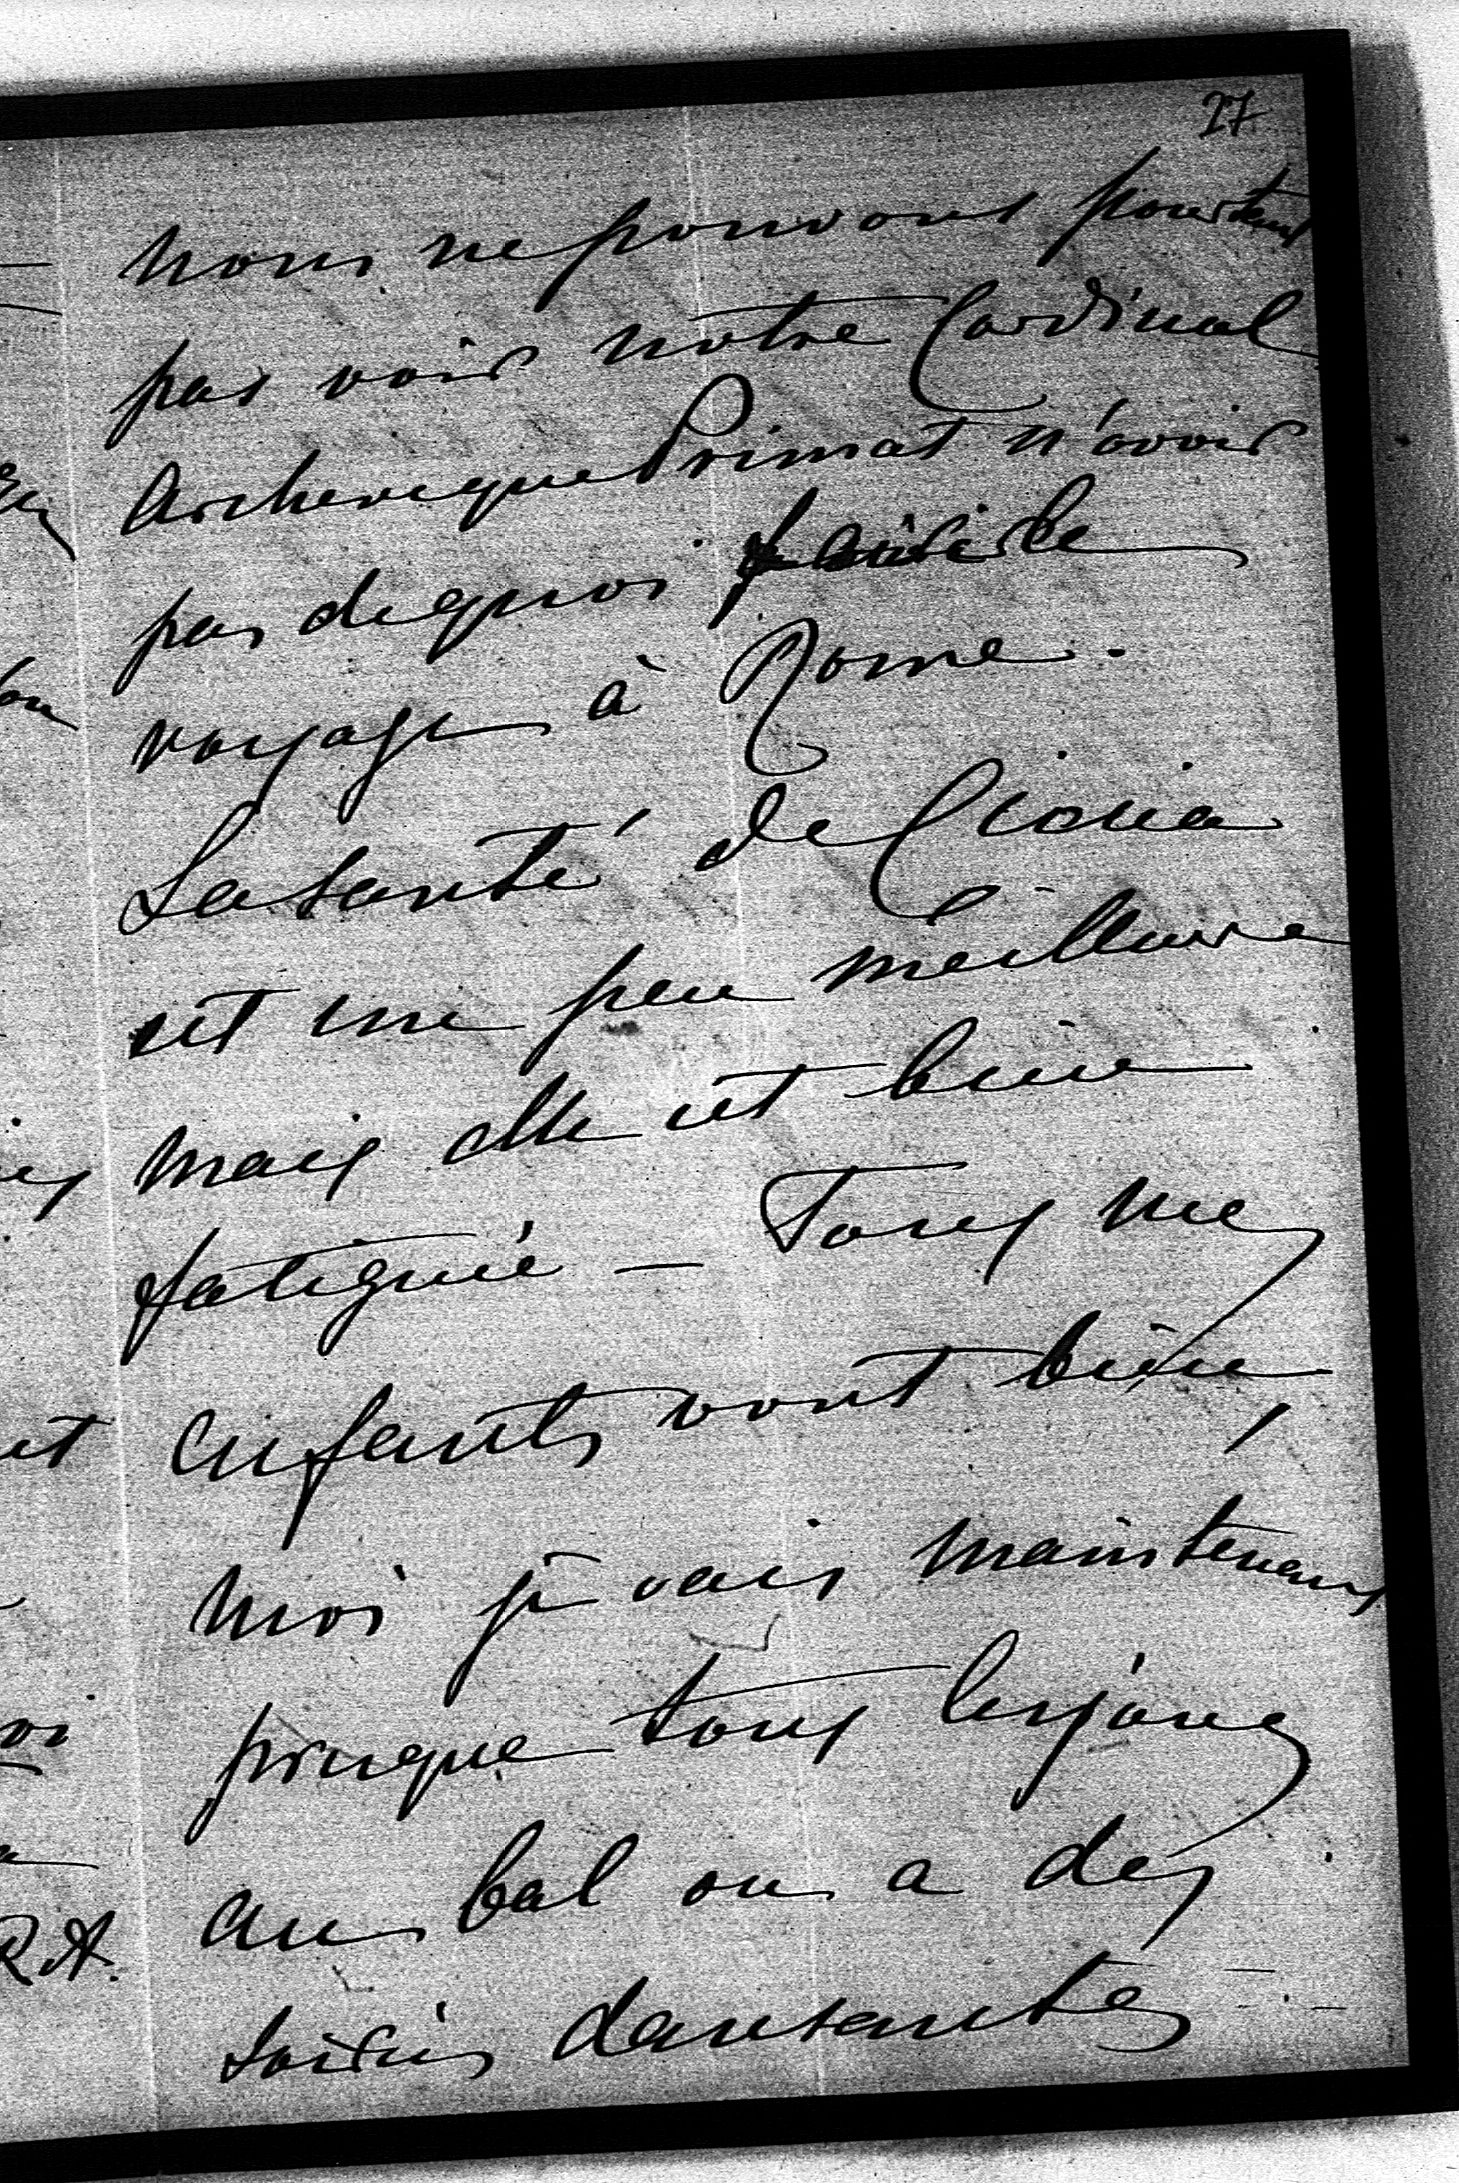 27
nous ne pouvons pourtant
pas voir notre Cardinal
Archeveque Primat n'avoir
pas de quoi faire le
voyage à Rome.
La santé de
est un peu meilleure
mais elle est bien
fatiguée — Tous mes
enfants vont bien,
moi je vais maintenant
presque tous les jours
au bal ou a des
soirées dansantes
R A.